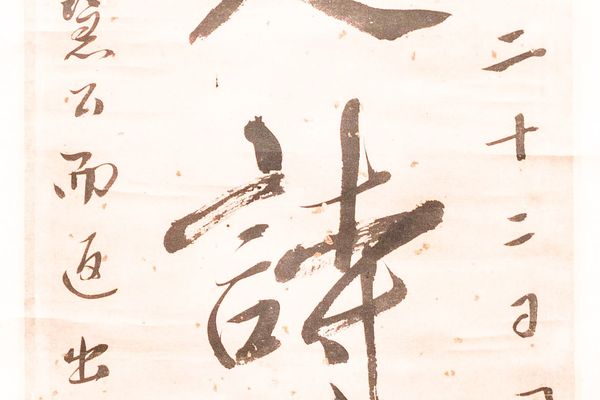 二十二日
詩
公而返出